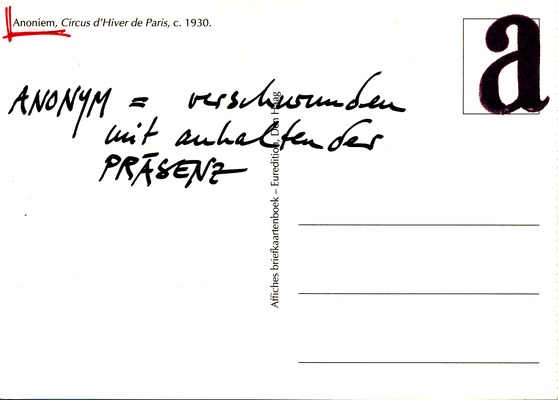 Anoniem, Circus d'Hiver de Paris, c. 1930.
a
ANONYM = verschwunden
mit anhaltender
PRÄSENZ
Affiches briefkaartenboek – Euredition, Den Haag